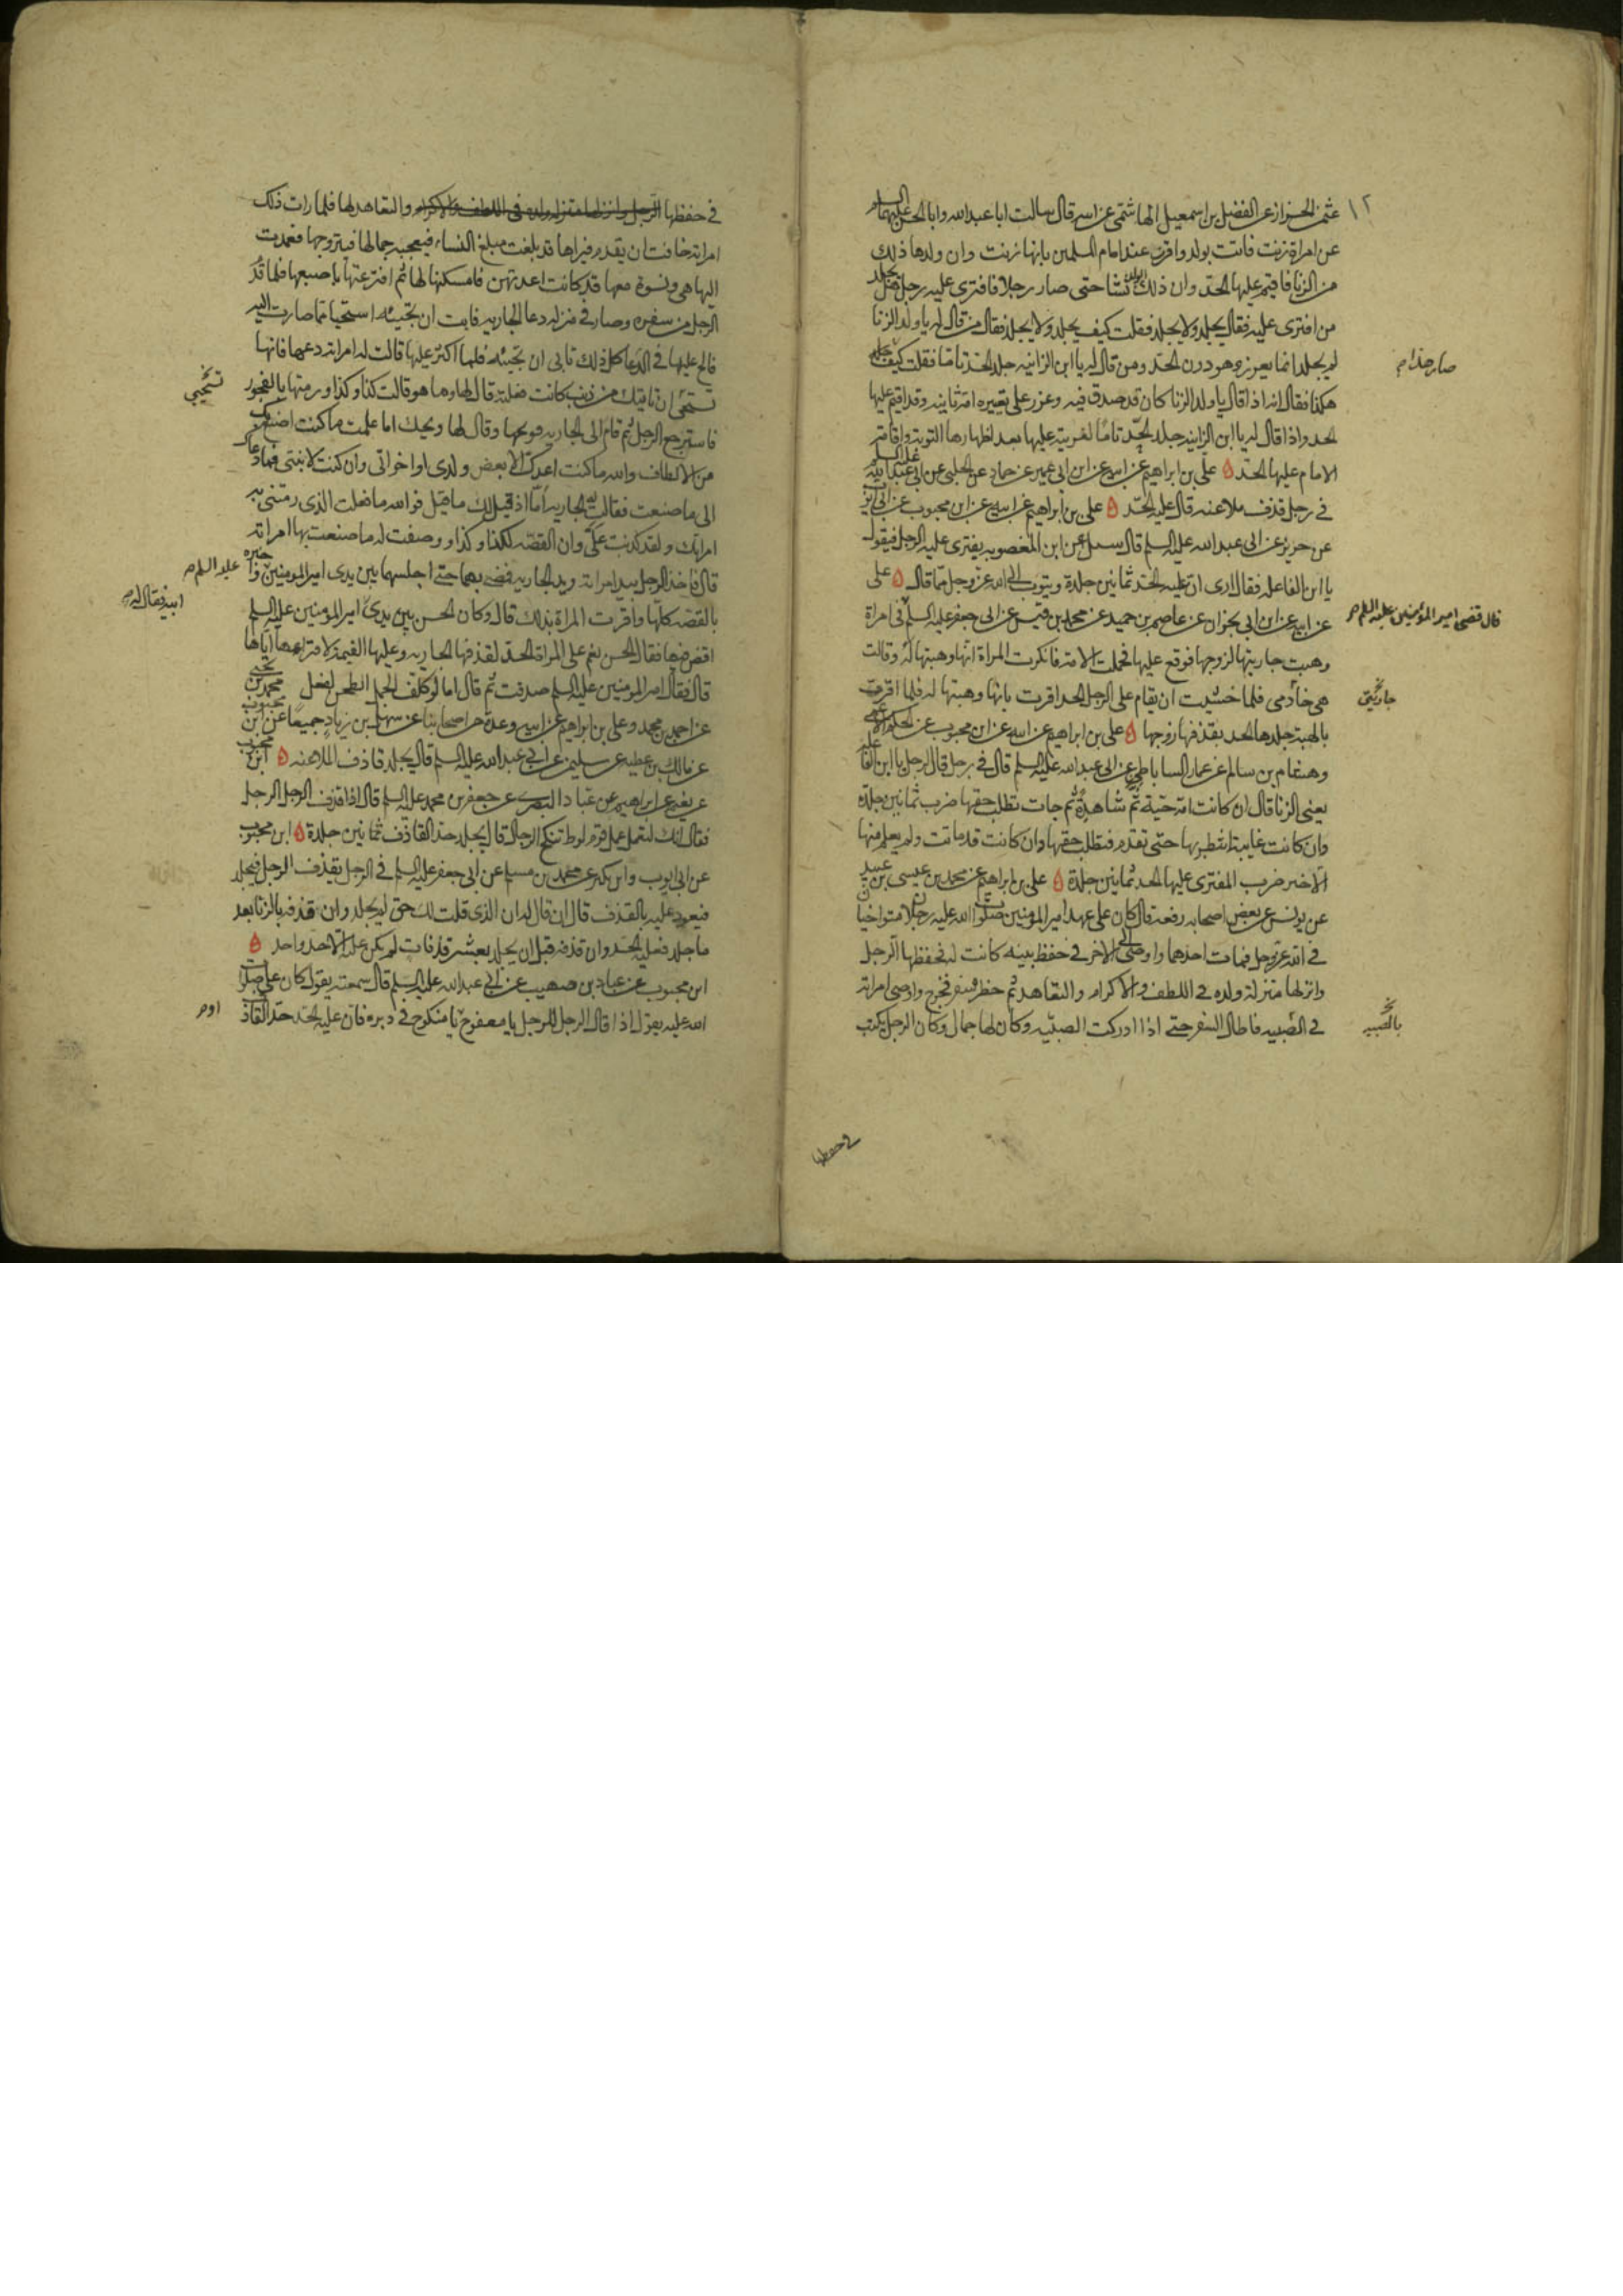 عثمن الخزاز عن الفضل بن اسمعيل الهاشمي عن ابيه قال سالت ابا عبد الله وابا الحسن عليهما السلم
عن امراة زنت فاتت بولد واقرت عند امام المسلمين بانها زنت وان ولدها ذلك
من الزنا فاقيم عليها الحد وان ذلك الولد نشا حتى صار رجلا فافترى عليه رجل هل يجلد
من افترى عليه فقال يجلد ولا يجلد فقلت كيف يجلد ولا يجلد فقال من قال له يا ولد الزنا
لم يجلد انما يعزر وهو دون الحد ومن قال له يا ابن الزانيه جلد الحد تاما فقلت كيف جلد
صار هذا م
هكذا فقال انه اذا قال يا ولد الزنا كان قد صدق فيه وعزر على تعييره امه ثانيه وقد اقيم عليها
الحد واذا قال له يا ابن الزانيه جلد الحد تاما لفريته عليها بعد اظهارها التوبة واقامة
الامام عليها الحد ۵ علي بن ابراهيم عن ابيه عن ابن ابي عمير عن حماد عن الحلبي عن ابي عبد الله عليه السلم
في رجل قذف ملاعنه قال عليه الحد ۵ علي بن ابراهيم عن ابيه عن ابن محبوب عن ابي ايوب
عن حريز عن ابي عبد الله عليه السلم قال سئل عن ابن المغصوبه يفترى عليه الرجل فيقول
يا ابن الفاعله فقال ارى ان عليه الحد ثمانين جلدة ويتوب الى الله عز وجل مما قال ۵ على
عن ابيه عن ابن ابي نجران عن عاصم بن حميد عن محمد بن قيس عن ابي جعفر عليه السلم في امراة
قال قضى امير المؤمنين عليه السلم م
وهبت جاريتها لزوجها فوقع عليها فحملت الامه فانكرت المراة انها وهبتها له وقالت
هي خادمي فلما خشيت ان يقام على الرجل الحد اقرت بانها وهبتها له فلما اقرت
جاريتي
بالهبة جلدها الحد بقذفها زوجها ۵ علي بن ابراهيم عن ابيه عن ابن محبوب عن الحكم الاعمى
وهشام بن سالم عن عمار الساباطي عن ابي عبد الله عليه السلم قال في رجل قال لرجل يا ابن الفاعله
يعني الزنا قال ان كانت امه حية ثم شاهدة ثم جات تطلب حقها ضرب ثمانين جلدة
وان كانت غايبة انتظر بها حتى تقدم فتطلب حقها وان كانت قد ماتت ولم يعلم منها
الا خير ضرب المفترى عليها الحد ثمانين جلدة ۵ علي بن ابراهيم عن محمد بن عيسى بن عبيد
عن يونس عن بعض اصحابه رفعه قال كان على عهد امير المومنين صلوات الله عليه رجلان متواخيان
في الله عز وجل فمات احدهما واوصى الى الاخر في حفظ بنيه كانت له فحفظها الرجل
وانزلها منزلة ولده في اللطف والاكرام والتعاهد ثم حضره سفر فخرج واوصى امراته
في الصبيه فاطال السفر حتى اذا ادركت الصبيه وكان لها جمال وكان الرجل يكتب
بالصبيه
في حفظها
في حفظها الرجل وانزلها منزلة ولده في اللطف والاكرام والتعاهد لها فلما رات ذلك
امراته خافت ان يقدم فيراها قد بلغت مبلغ النساء فيعجبه جمالها فيتزوجها فعمدت
اليها هي ونسوة معها قد كانت اعدتهن فامسكنها لها ثم افترعتها باصبعها فلما قدم
الرجل من سفره وصار في منزله دعا الجاريه فابت ان تجيبه استحيا مما صارت اليه
فالح عليها في الدعا كل ذلك تابى ان تجيبه فلما اكثر عليها قالت له امراته دعها فانها
تستحي ان تاتيك من ذنب كانت فعلته قال لها وما هو قالت كذا وكذا ورمتها بالفجور
تستحيي
فاسترجع الرجل ثم قام الى الجاريه فوبخها وقال لها ويحك اما علمت ما كنت اصنع بك
من الالطاف والله ما كنت اعدك الا بعض ولدى او اخواتي وان كنت لابنتي فما دعاك
الى ما صنعت فقالت له الجاريه اما اذ قيل لك ما قيل فوالله ما فعلت الذي رمتني به
امراتك ولقد كذبت علي وان القصه لكذا وكذا ووصفت له ما صنعت بها امراته
قال فاخذ الرجل بيد امراته ويد الجاريه فمضى بهما حتى اجلسهما بين يدى امير المومنين واخبره
عليه السلم م
بالقصه كلها واقرت المراة بذلك قال وكان الحسن بين يدى امير المومنين عليه السلم
ابيه فقال له م
اقض فيها فقال الحسن نعم على المراة الحد لقذفها الجاريه وعليها القيمة لافتراعها اياها
قال فقال امير المومنين عليه السلم صدقت ثم قال اما لو كلف الجمل الطحن لفعل محمد بن يحيى
عن احمد بن محمد وعلي بن ابراهيم عن ابيه وعدة من اصحابنا عن سهل بن زياد جميعا عن ابن محبوب
عن مالك بن عطيه عن سليمن عن ابي عبد الله عليه السلم قال يجلد قاذف الملاعنه ۵ ابن محبوب
عن نعيم عن ابراهيم عن عباد البصرى عن جعفر بن محمد عليه السلم قال اذا قذف الرجل الرجل
فقال انك لتعمل عمل قوم لوط تنكح الرجال قال يجلد حد القاذف ثمانين جلدة ۵ ابن محبوب
عن ابي ايوب وابن بكير عن محمد بن مسلم عن ابي جعفر عليه السلم في الرجل يقذف الرجل فيجلد
فيعود عليه بالقذف قال ان قال له ان الذي قلت لك حق لم يجلد وان قذفه بالزنا بعد
ما جلد فعليه الحد وان قذفه قبل ان يجلد بعشر قذفات لم يكن عليه الا حد واحد ۵
ابن محبوب عن عباد بن صهيب عن ابي عبد الله عليه السلم قال سمعته يقول كان علي صلوات
الله عليه يقول اذا قال الرجل للرجل يا معفوج يا منكوح في دبره فان عليه الحد حد القاذف
او م